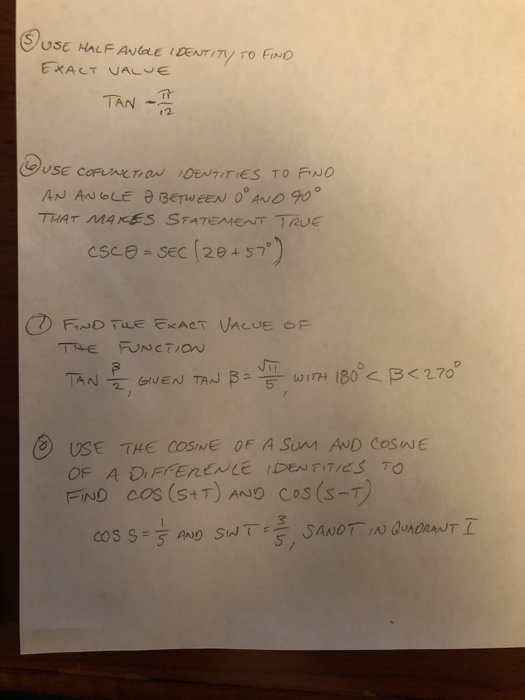 ⑤ USE HALF ANGLE IDENTITY TO FIND
EXACT VALUE
TAN - π/12
⑥ USE COFUNCTION IDENTITIES TO FIND
AN ANGLE θ BETWEEN 0° AND 90°
THAT MAKES STATEMENT TRUE
CSC θ = SEC (2θ + 57°)
⑦ FIND THE EXACT VALUE OF
THE FUNCTION
TAN β/2, GIVEN TAN β = √11/5, WITH 180° < β < 270°
⑧ USE THE COSINE OF A SUM AND COSINE
OF A DIFFERENCE IDENTITIES TO
FIND COS (S+T) AND COS (S-T)
COS S = 1/5 AND SIN T = 3/5, S AND T IN QUADRANT I